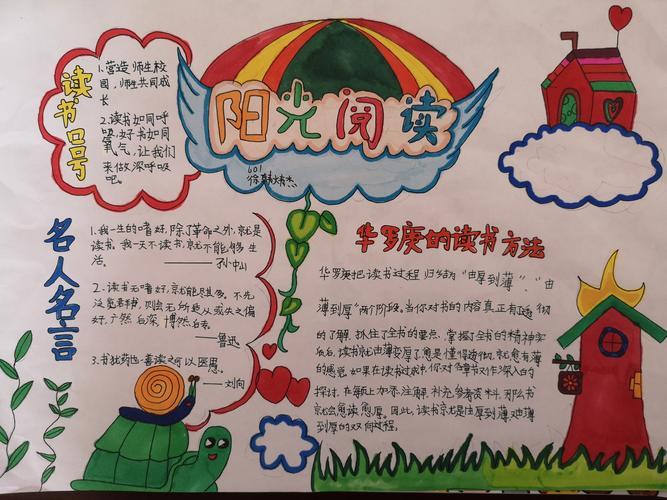 阳光阅读
601
读书口号
1.营造师生校
园,师生共同成
长
2.读书如同呼
吸,好书如同
氧气,让我们
来做深呼吸
吧。
名人名言
1.我一生的嗜好,除了革命之外,就是
读书。我一天不读书,就不能够生
活。
——孙中山
2.读书无嗜好,就能尽其多。不先
泛览群书,则会无所适从或失之偏
好,广然后深,博然后专。
——鲁迅
3.书犹药也,善读之可以医愚。
——刘向
华罗庚的读书方法
华罗庚把读书过程归结为“由厚到薄”、“由
薄到厚”两个阶段。当你对书的内容真正有了透彻
的了解,抓住了全书的要点,掌握了全书的精神实
质后,读书就由薄变厚了愈是懂得透彻,就愈有薄
的感觉。如果在读书过程中,你对各章节又作深入的
探讨,在每页上加添注解,补充参考资料,那么书
就会愈读愈厚。因此,读书就是由厚到薄,又由薄
到厚的双向过程。